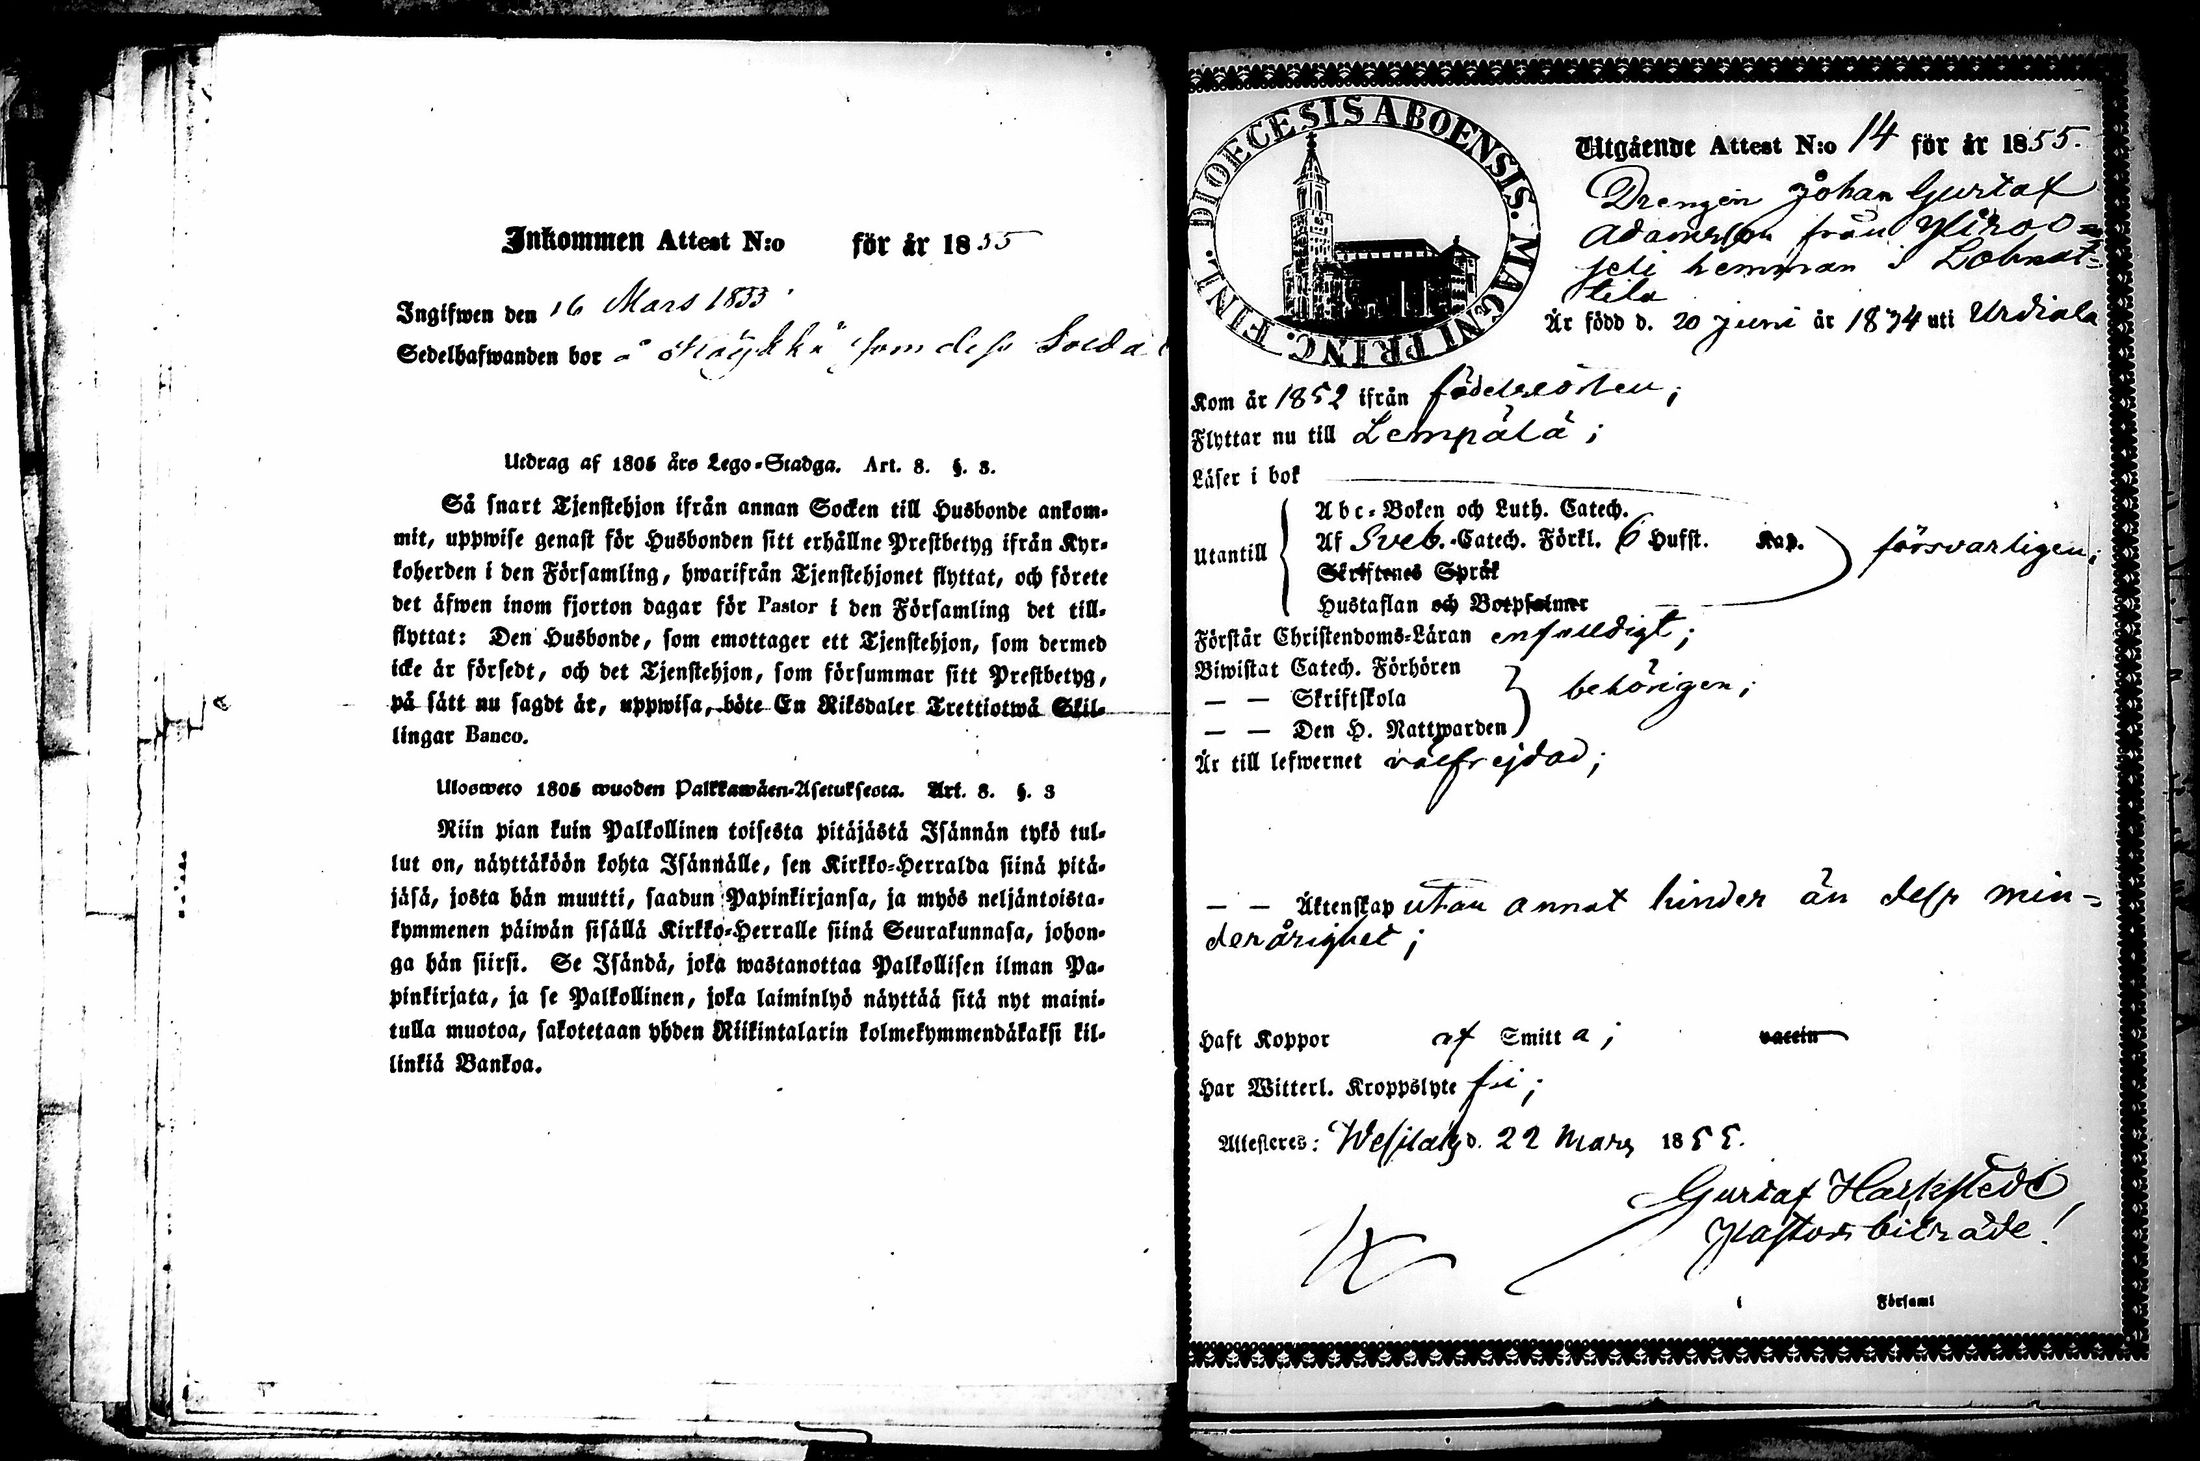 Inkommen Attest N:o för år 1855
Ingifwen den 16 Mars 1855.
Sedelhafwanden bor å som dess
Utdrag af 1805 års Lego-Stadga. Art. 8. §. 3.
Så snart Tjenstehjon ifrån annan Socken till Husbonde ankom-
mit, uppwise genast för Husbonden sitt erhållne Prestbetyg ifrån Kyr-
koherden i den Församling, hwarifrån Tjenstehjonet flyttat, och förete
det äfwen inom fjorton dagar för Pastor i den Församling det till-
flyttat: Den Husbonde, som emottager ett Tjenstehjon, som dermed
icke är försedt, och det Tjenstehjon, som försummar sitt Prestbetyg,
på sätt nu sagdt är, uppwisa, böte En Riksdaler Trettiotwå Skil-
lingar Banco.
Ulosweto 1805 wuoden Palkkawäen-Asetuksesta. Art. 8. §. 3
Niin pian kuin Palkollinen toisesta pitäjästä Isännän tykö tul-
lut on, näyttäköön kohta Isännälle, sen Kirkko-Herralda siinä pitä-
jäsä, josta hän muutti, saadun Papinkirjansa, ja myös neljäntoista-
kymmenen päiwän sisällä Kirkko-Herralle siinä Seurakunnasa, johon-
ga hän siirsi. Se Isändä, joka wastanottaa Palkollisen ilman Pa-
pinkirjata, ja se Palkollinen, joka laiminlyö näyttää sitä nyt maini-
tulla muotoa, sakotetaan yhden Riikintalarin kolmekymmendäkaksi kil-
linkiä Bankoa.
DIOECESIS ABOENSIS. MAGNI PRINC. FINL.
Utgående Attest N:o 14 för år 1855.
Drengen Johan Gustaf
Adamsson från Yliroo=
jeli hemman i
tila
Är född d. 20 Juni år 1834 uti Urdiala
Kom år 1852 ifrån födelseorten;
Flyttar nu till Lempälä;
Läser i bok
Abc-Boken och Luth. Catech.
Utantill Af Sveb. Catech. Förkl. 6 Hufst. Kap. försvarligen;
Skriftenes Språk
Hustaflan och Botpsalmer
Förstår Christendoms-Läran enfalldigt;
Biwistat Catech. Förhören
— — Skriftskola behörigen;
— — Den H. Nattwarden
Är till lefwernet välfrejdad;
— — Äktenskap utan annat hinder än dess min=
derårighet;
Haft Koppor af Smitta; vaccin
Har Witterl. Kroppslyte fri;
Attesteres: Wesilaks d. 22 Mars 1855.
Gustaf
Pastors biträde!
i Församl